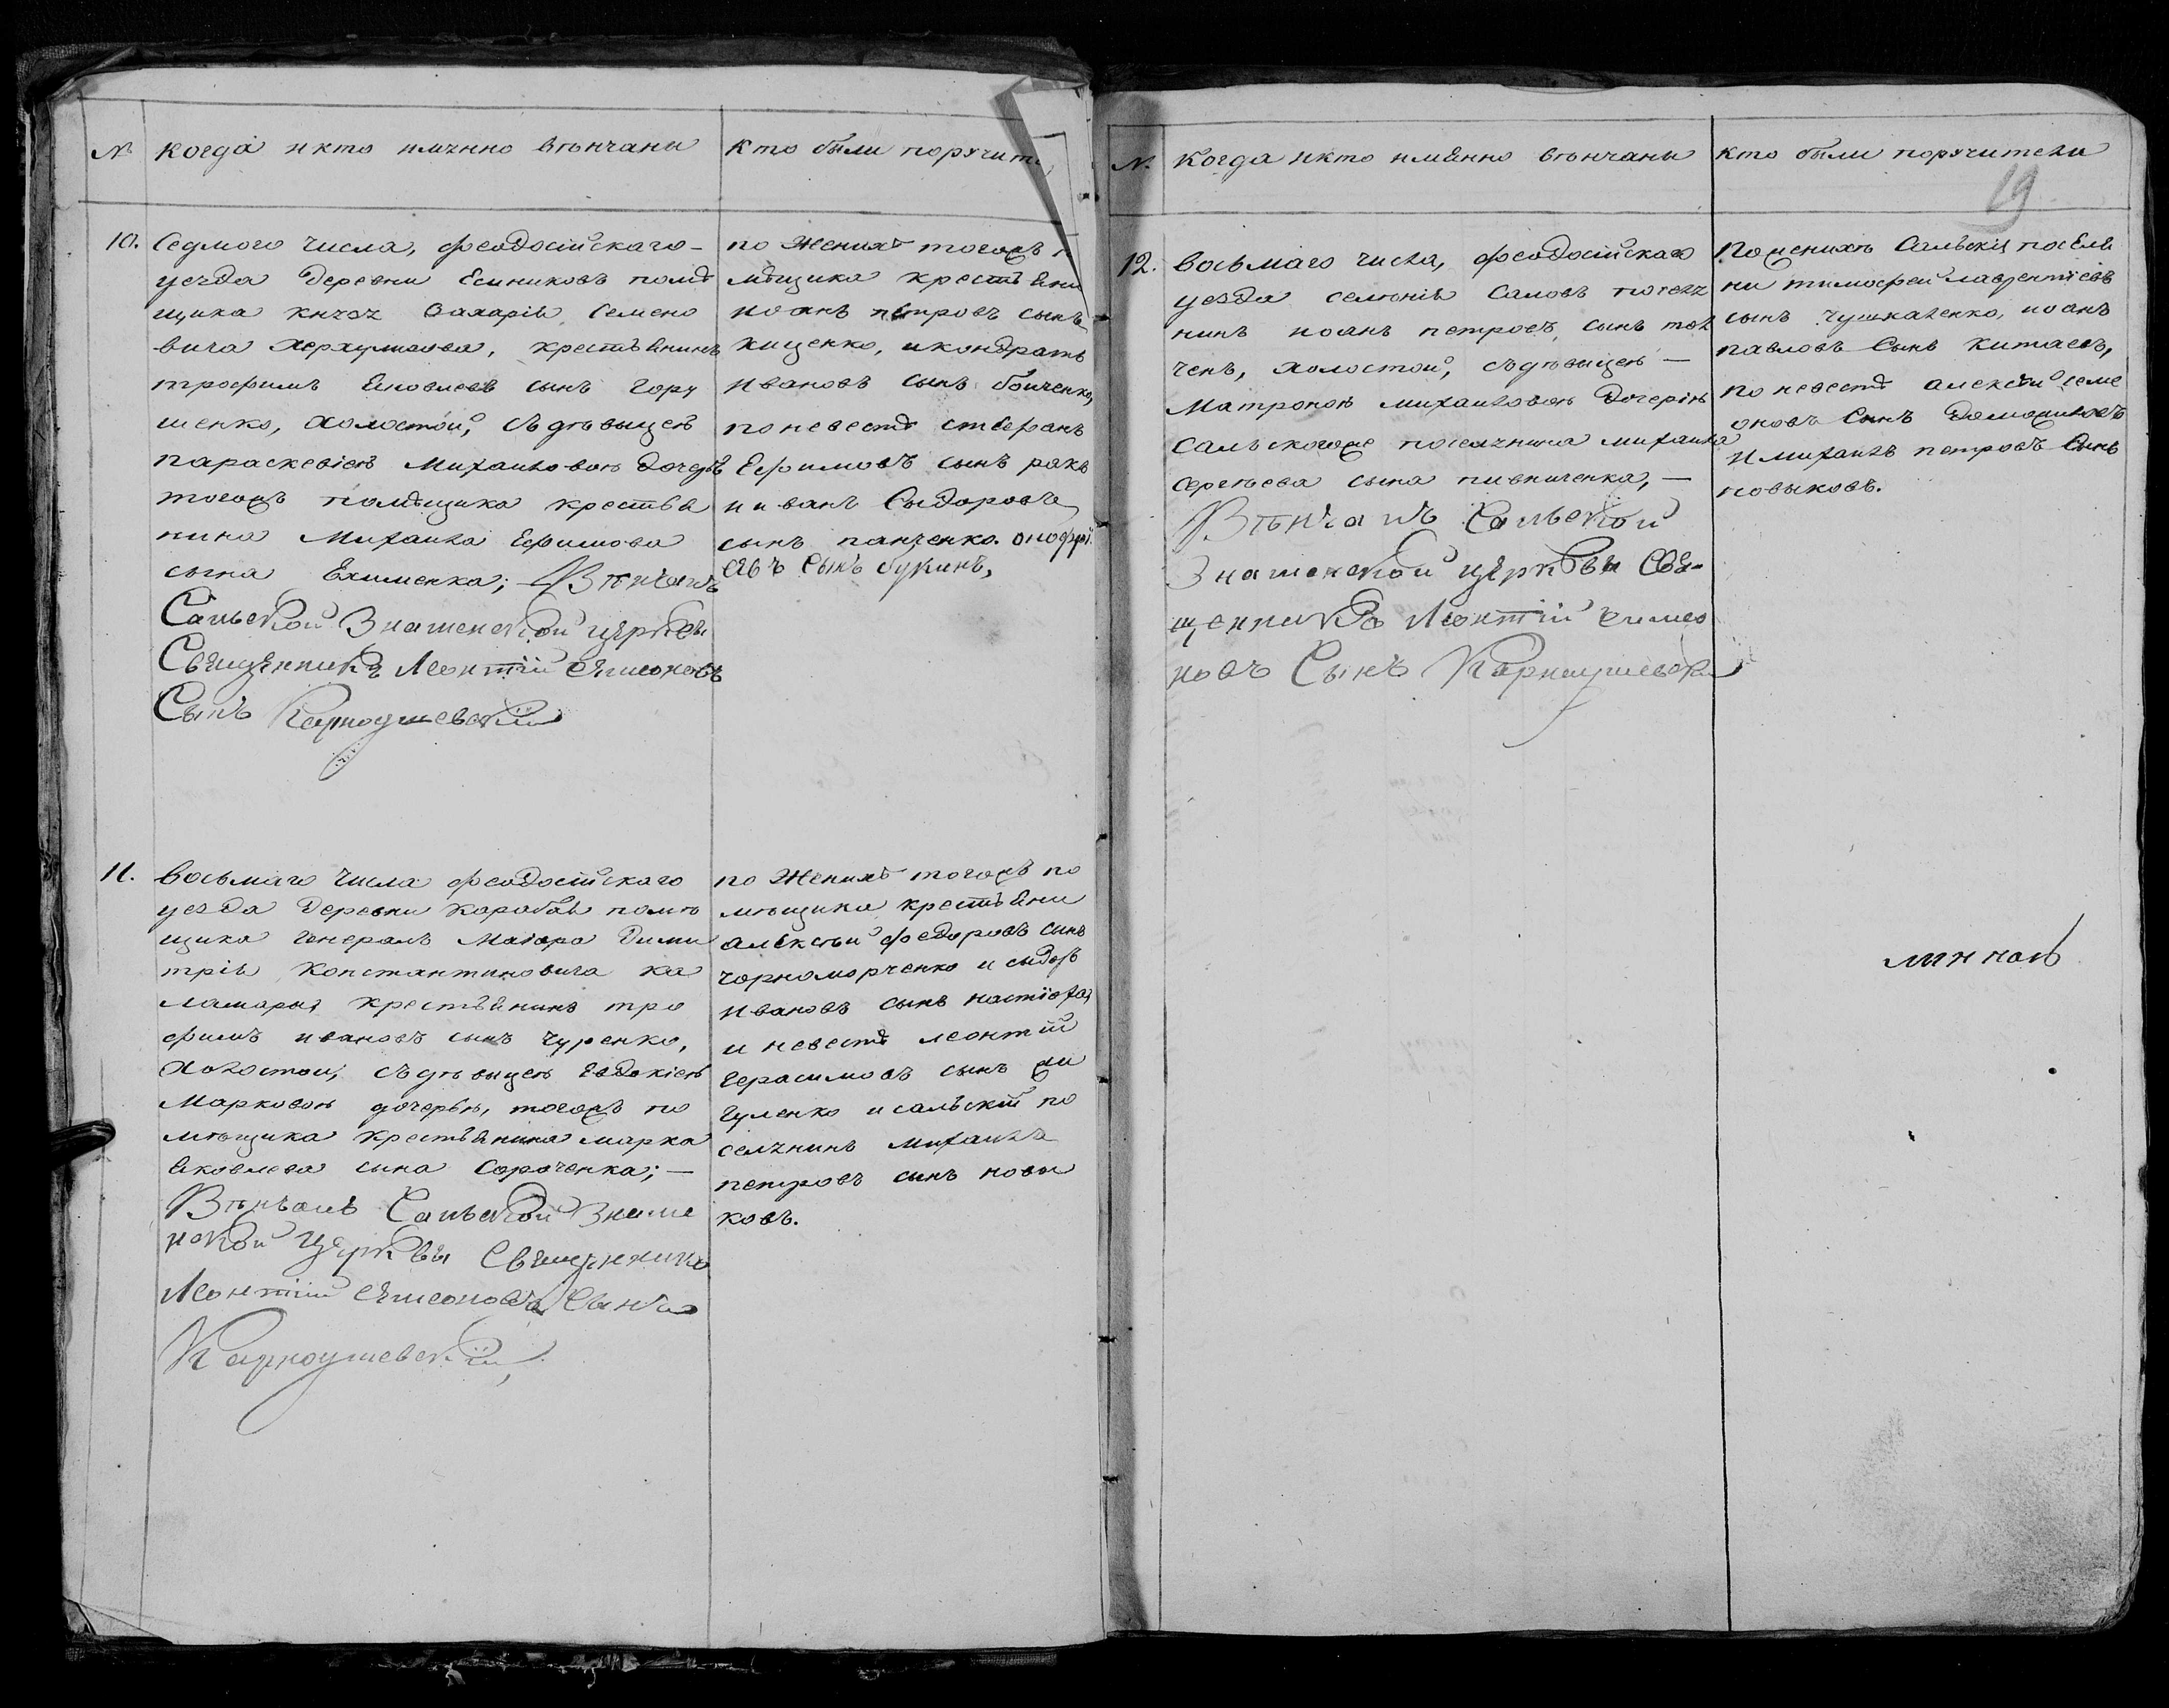 № Когда и кто имянно вѣнчаны
Кто были поручит
10. Седмого числа, феодосійскаго-
уезда деревни помѣ
щика князя Захарія Семено
вича Херхулисова, крестьянинъ
трофимъ Яковлевъ сынъ Гору
шенко, холостой, съ дѣвицею
параскевіею Михаиловою дочерью
тогожъ помѣщика крестья
нина Михаила Ефимова
сына Ехименка; Вѣнчалъ
Сальской Знаменской церкви
Священникъ Леонтій Симоновъ
Сынъ Карноушевскій
по Женихѣ тогожъ п
мѣщика крестьяни
иоанъ петровъ сынъ
кищенко, и кондратъ
Ивановъ сынъ бойченко,
по невестѣ стефанъ
Ефимовъ сынъ ракъ
и иванъ Сыдоровъ
сынъ панченко. онофрі
евъ Сынъ букинъ,
11. Восьмаго числа феодосійскаго
уезда деревни Карабай помѣ
щика Генералъ Маіора Дими
трія Константиновича ка
крестьянинъ тро
фимъ ивановъ сынъ чуренко,
Холостой, съ дѣвицею Евдокіею
Марковою дочерью, тогожъ по
мѣщика крестьянина марка
Яковлева сына Сороченка; —
Вѣнчалъ Сальской Знаме
нской Церкви Священникъ
Леонтій Симоновъ Сынъ
Карноушевскій,
по Женихѣ тогожъ по
мѣщика крестьяни
алексѣй федоровъ сынъ
чорноморченко и сыдоръ
Ивановъ сынъ
и невестѣ леонтій
Герасимовъ сынъ
и сальскій по
селянинъ Михаилъ
петровъ сынъ новы
ковъ.
N. Когда и кто имянно вѣнчаны
Кто были поручители
19
12. восьмаго числа, феодосійскаго
уезда селѣнія Саловъ поселя
нинъ иоанъ петровъ, сынъ тол
ченъ, холостой, съ дѣвицею —
Матроною михаиловою Дочерію
сальскогоже поселянина михаила
сергеева сына пивниченка, —
Вѣнчалъ Сальской
Знаменской церкви Свя-
щенникъ Леонтій Симео
новъ Сынъ Карноушевскій
По женихѣ Сальскія поселя
ни тимофей лаврентіевъ
сынъ чушкаленко, иоанъ
павловъ Сынъ китаевъ,
по невестѣ алексѣй семе
оновъ Сынъ
И михаилъ петровъ Сынъ
новыковъ.